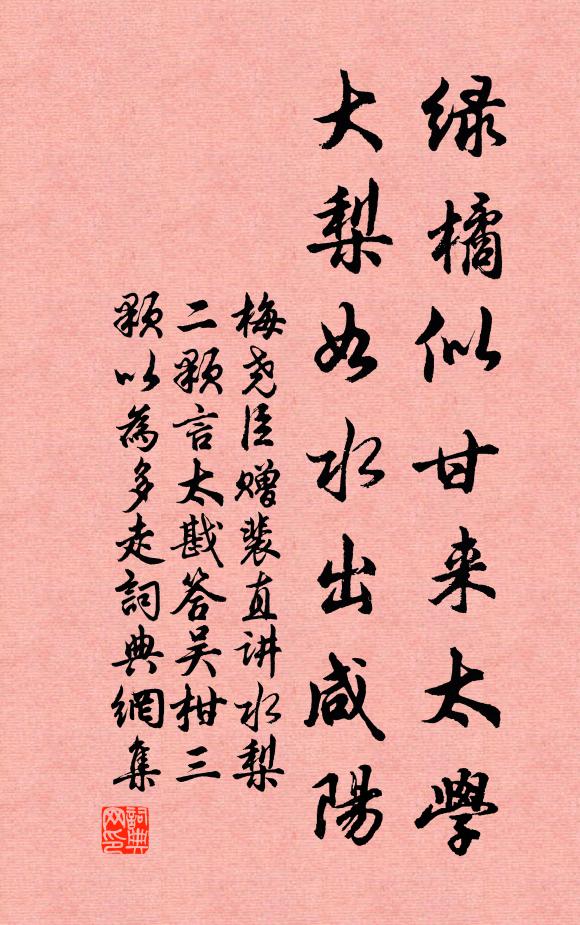 绿橘似甘来太学
大梨如水出咸陽
梅尧臣赠裴直讲水梨
二颗言太戡答吴柑三
颗以為多走詞典網集
詞典
网印